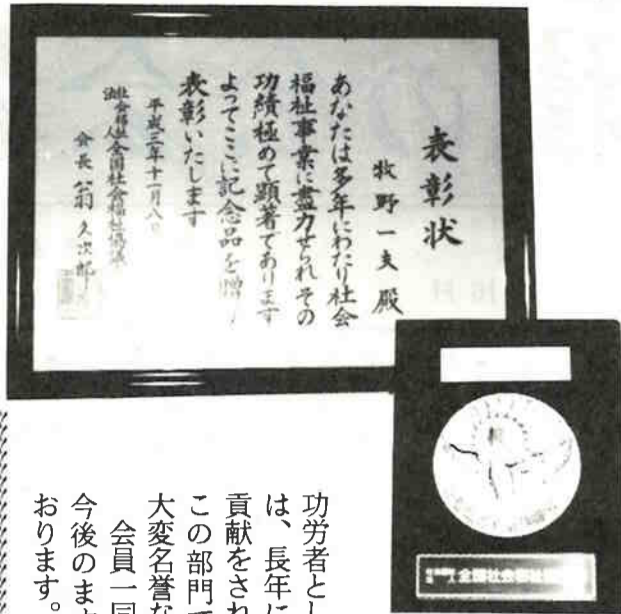 表彰状
牧野一夫殿
あなたは多年にわたり社会
福祉事業に盡力せられその
功績極めて顕著であります
よってここに記念品を贈り
表彰いたします
平成三年十一月八日
社会福祉法人全国社会福祉協議会
会長翁久次郎
全国社会福祉
功労者とし
は、長年に
貢献をされ
この部門で
大変名誉な
会員一同
今後のま
おります。